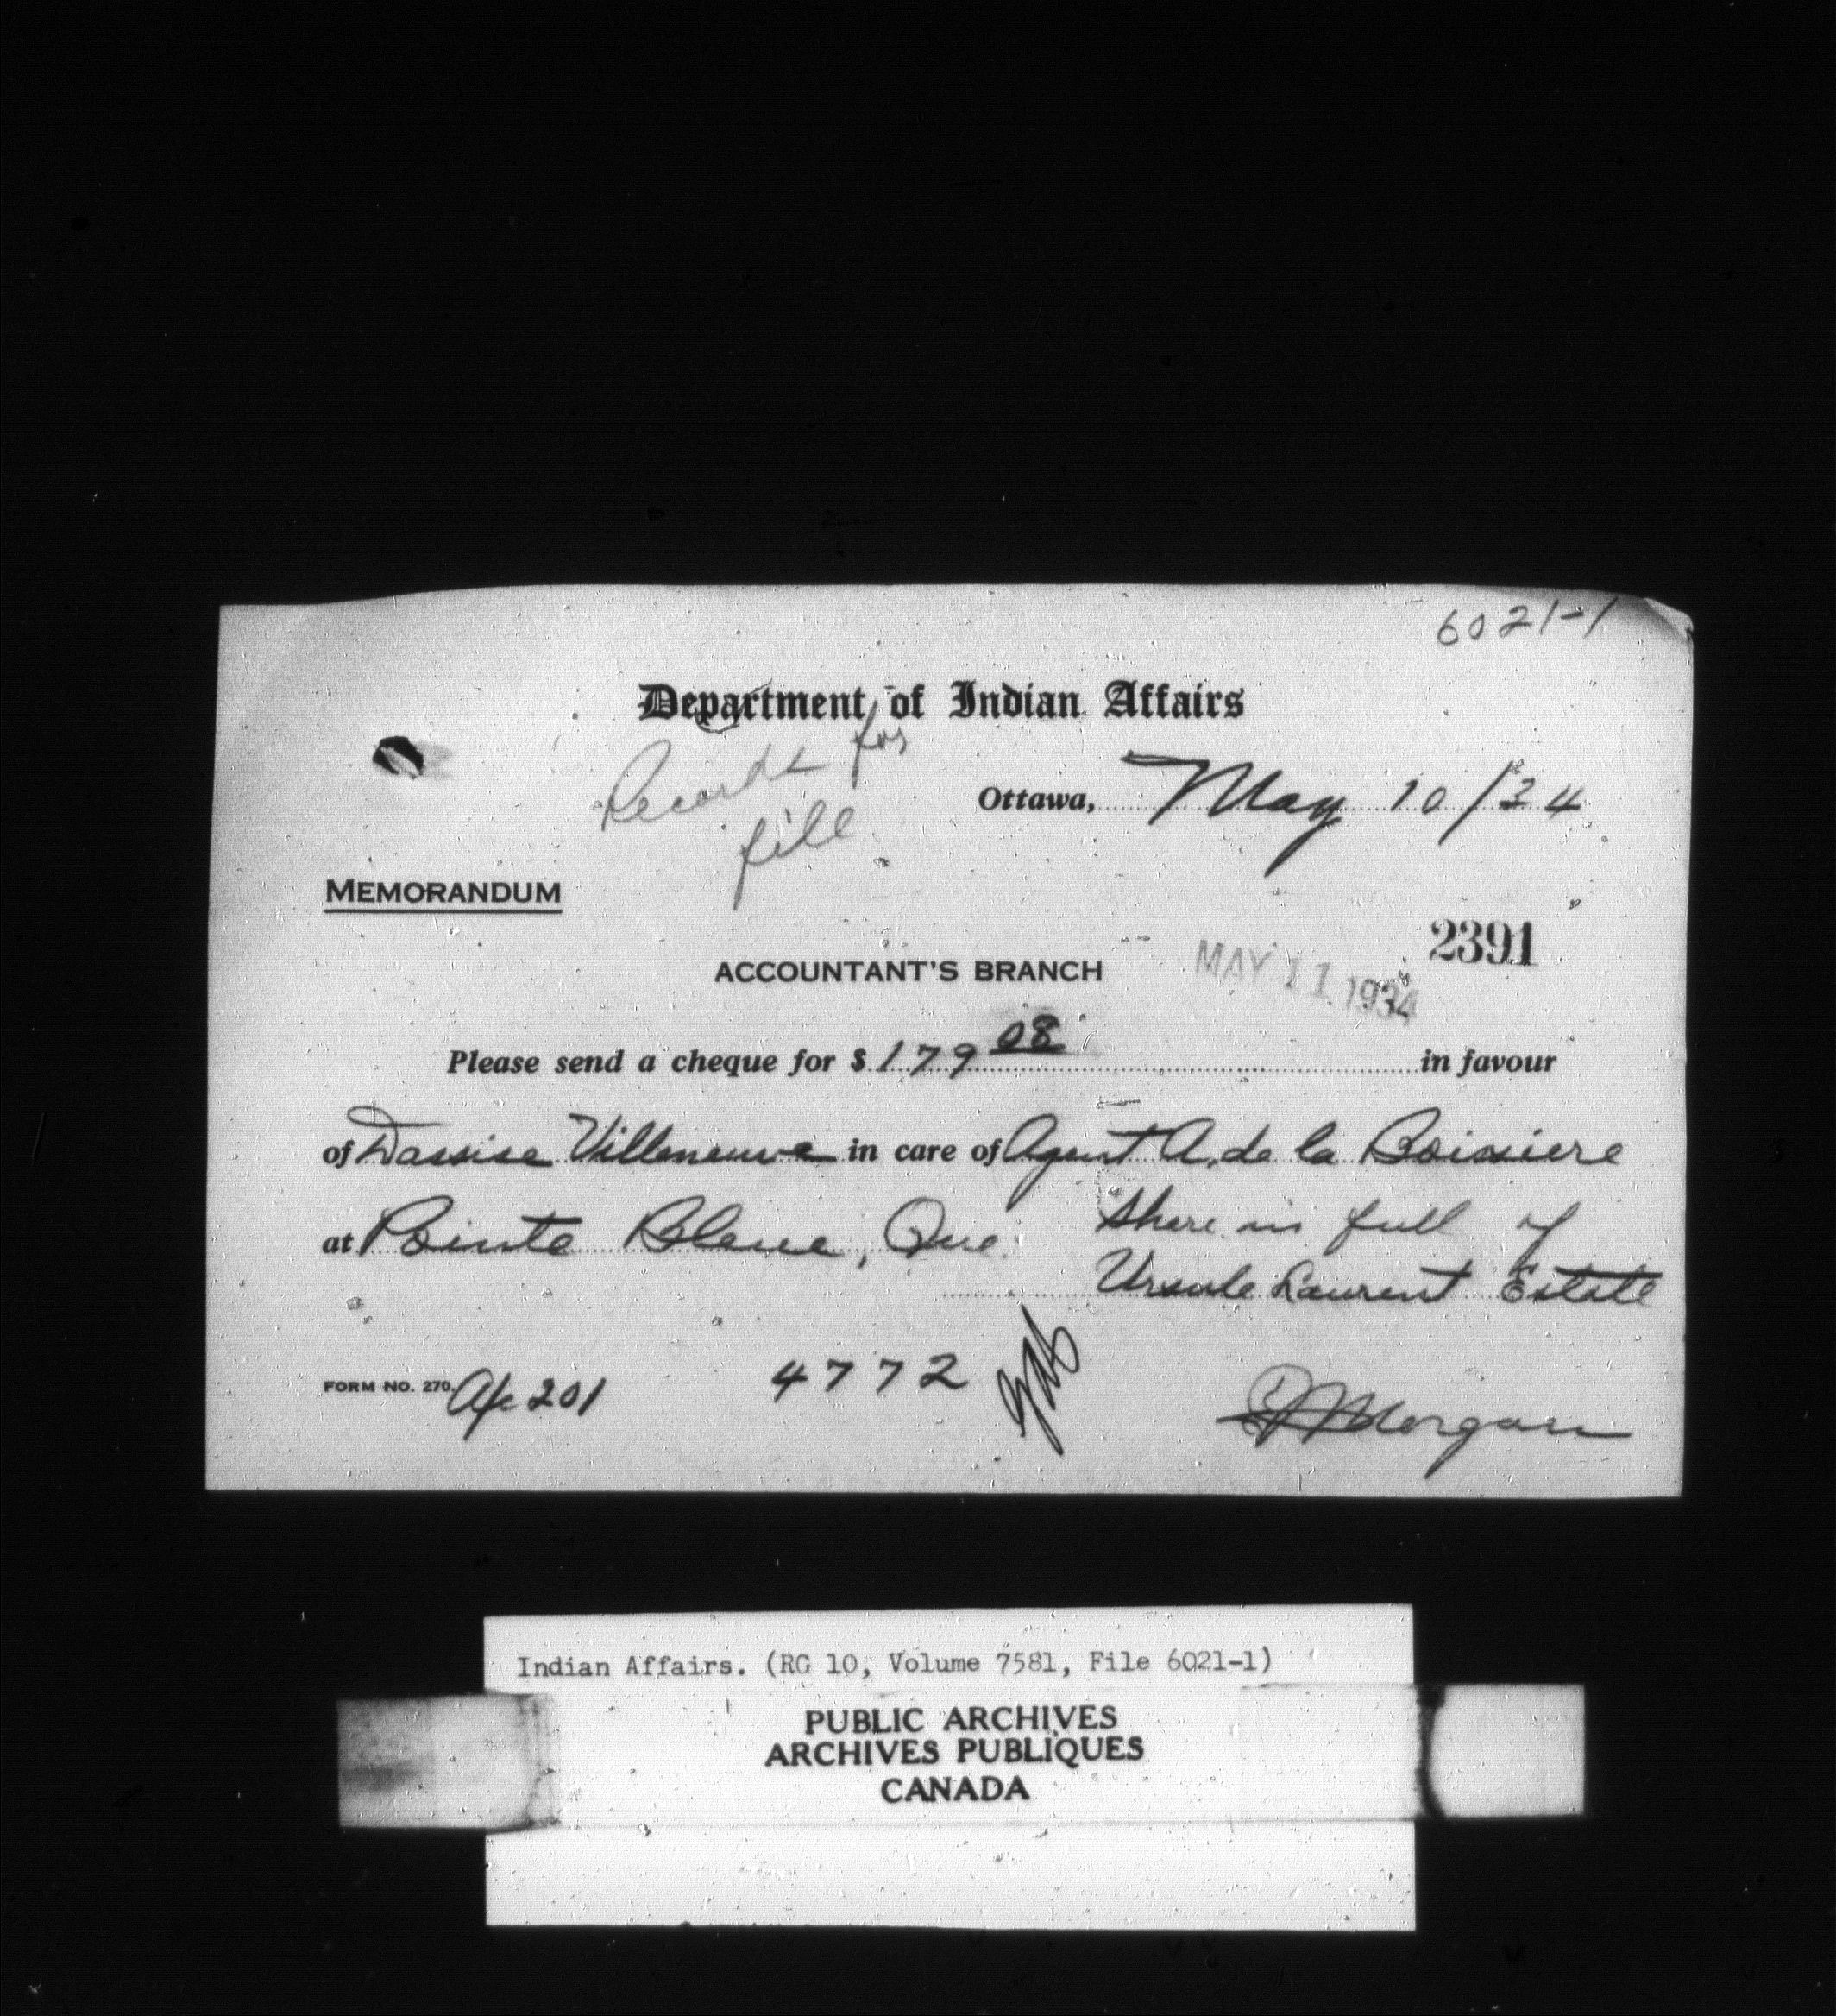 6021-1
Department of Indian Affairs
Records for
file
Ottawa, May 10/34
MEMORANDUM
2391
ACCOUNTANT'S BRANCH
MAY 11 1934
Please send a cheque for $ 179 08 in favour
of Villeneuve in care of Agent A. de la Boissiere
at Pointe Bleue, Que. Share in full of
Ursule Laurent Estate
FORM NO. 270. A/c 201 4772
Morgan
Indian Affairs. (RG 10, Volume 7581, File 6021-1)
PUBLIC ARCHIVES
ARCHIVES PUBLIQUES
CANADA